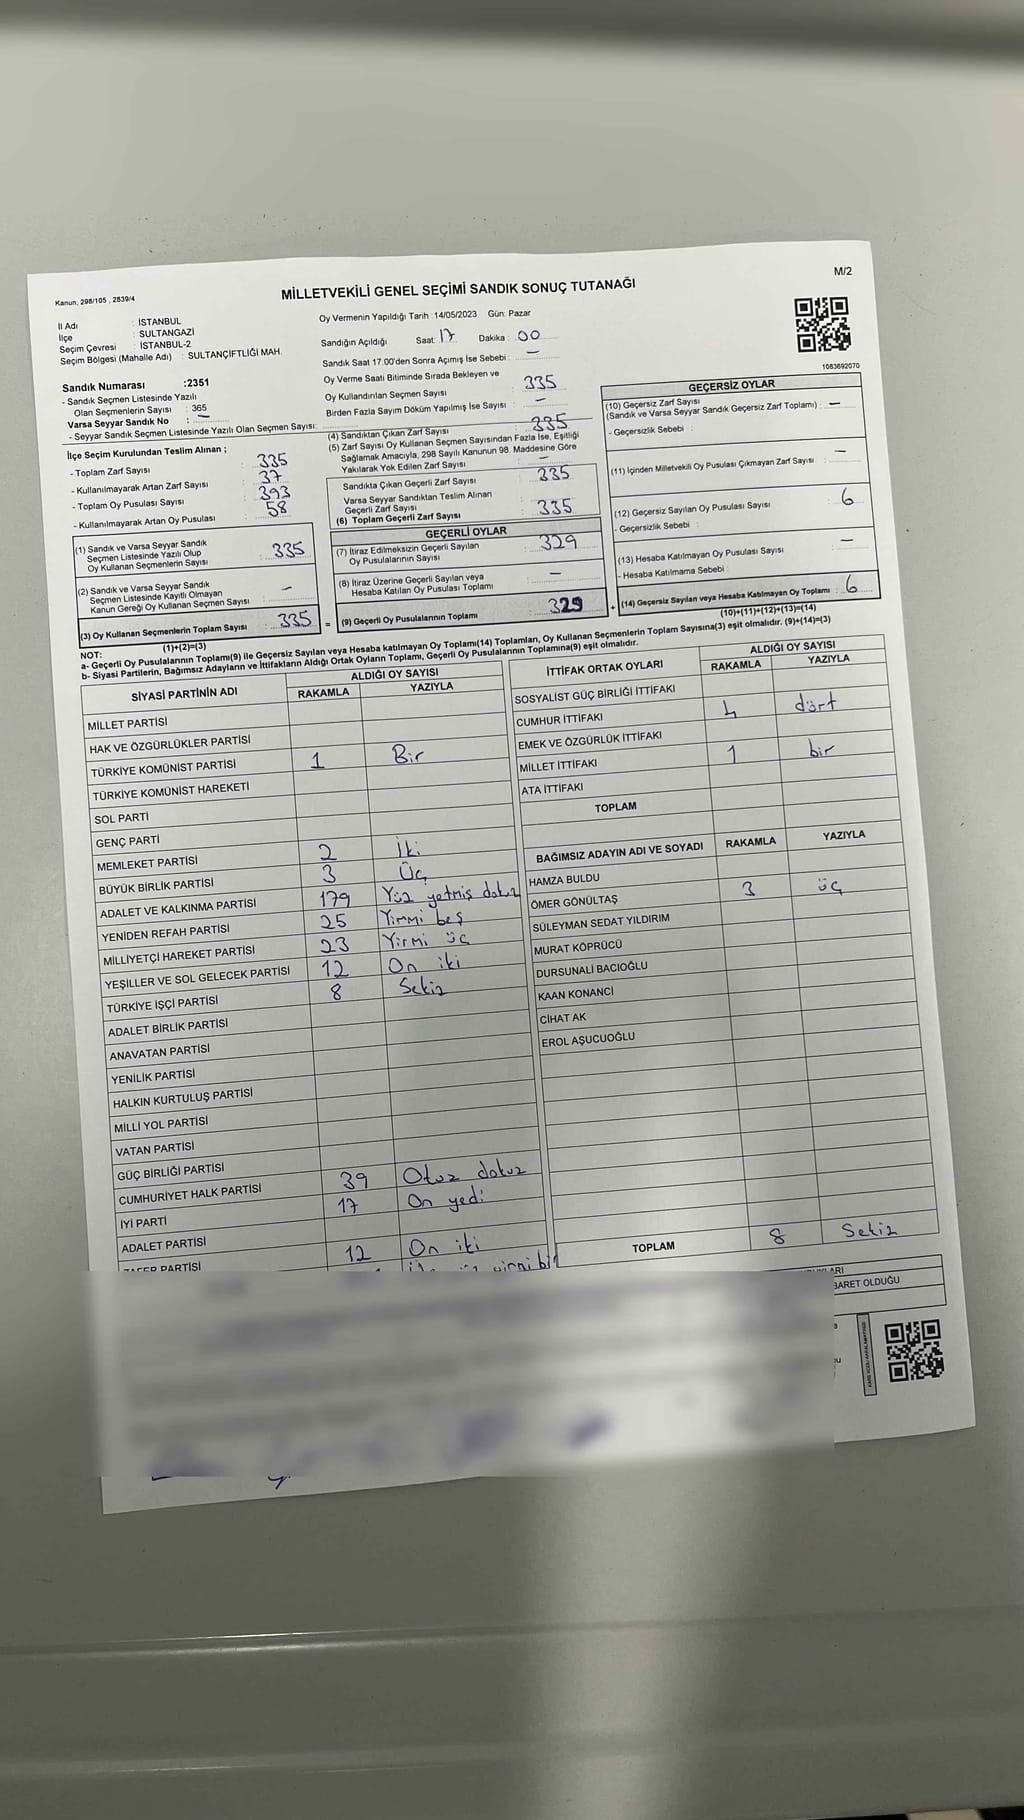 Kanun, 298/105 , 2839/4
M/2
MİLLETVEKİLİ GENEL SEÇİMİ SANDIK SONUÇ TUTANAĞI
İl Adı : İSTANBUL
İlçe : SULTANGAZİ
Seçim Çevresi : İSTANBUL-2
Seçim Bölgesi (Mahalle Adı) : SULTANÇİFTLİĞİ MAH.
Sandık Numarası :2351
- Sandık Seçmen Listesinde Yazılı
Olan Seçmenlerin Sayısı : 365
Varsa Seyyar Sandık No : —
- Seyyar Sandık Seçmen Listesinde Yazılı Olan Seçmen Sayısı:
Oy Vermenin Yapıldığı Tarih :14/05/2023 Gün: Pazar
Sandığın Açıldığı Saat: 17 Dakika : 00
Sandık Saat 17:00'den Sonra Açımış İse Sebebi : —
Oy Verme Saati Bitiminde Sırada Bekleyen ve
Oy Kullandırılan Seçmen Sayısı : 335
Birden Fazla Sayım Döküm Yapılmış İse Sayısı : —
1083692070
İlçe Seçim Kurulundan Teslim Alınan ;
- Toplam Zarf Sayısı : 335
- Kullanılmayarak Artan Zarf Sayısı : 37
- Toplam Oy Pusulası Sayısı : 393
- Kullanılmayarak Artan Oy Pusulası : 58
(1) Sandık ve Varsa Seyyar Sandık
Seçmen Listesinde Yazılı Olup
Oy Kullanan Seçmenlerin Sayısı : 335
(2) Sandık ve Varsa Seyyar Sandık
Seçmen Listesinde Kayıtlı Olmayan
Kanun Gereği Oy Kullanan Seçmen Sayısı : —
(3) Oy Kullanan Seçmenlerin Toplam Sayısı : 335
(1)+(2)=(3)
(4) Sandıktan Çıkan Zarf Sayısı : 335
(5) Zarf Sayısı Oy Kullanan Seçmen Sayısından Fazla İse, Eşitliği
Sağlamak Amacıyla, 298 Sayılı Kanunun 98. Maddesine Göre
Yakılarak Yok Edilen Zarf Sayısı : —
Sandıkta Çıkan Geçerli Zarf Sayısı : 335
Varsa Seyyar Sandıktan Teslim Alınan
Geçerli Zarf Sayısı :
(6) Toplam Geçerli Zarf Sayısı : 335
GEÇERLİ OYLAR
(7) İtiraz Edilmeksizin Geçerli Sayılan
Oy Pusulalarının Sayısı : 329
(8) İtiraz Üzerine Geçerli Sayılan veya
Hesaba Katılan Oy Pusulası Toplamı : —
= (9) Geçerli Oy Pusulalarının Toplamı : 329
GEÇERSİZ OYLAR
(10) Geçersiz Zarf Sayısı
(Sandık ve Varsa Seyyar Sandık Geçersiz Zarf Toplamı) : —
- Geçersizlik Sebebi :
(11) İçinden Milletvekili Oy Pusulası Çıkmayan Zarf Sayısı : —
(12) Geçersiz Sayılan Oy Pusulası Sayısı : 6
- Geçersizlik Sebebi :
(13) Hesaba Katılmayan Oy Pusulası Sayısı : —
- Hesaba Katılmama Sebebi :
+ (14) Geçersiz Sayılan veya Hesaba Katılmayan Oy Toplamı : 6
(10)+(11)+(12)+(13)=(14)
NOT:
a- Geçerli Oy Pusulalarının Toplamı(9) ile Geçersiz Sayılan veya Hesaba katılmayan Oy Toplamı(14) Toplamları, Oy Kullanan Seçmenlerin Toplam Sayısına(3) eşit olmalıdır. (9)+(14)=(3)
b- Siyasi Partilerin, Bağımsız Adayların ve İttifakların Aldığı Ortak Oyların Toplamı, Geçerli Oy Pusulalarının Toplamına(9) eşit olmalıdır.
SİYASİ PARTİNİN ADI ALDIĞI OY SAYISI
RAKAMLA YAZIYLA
MİLLET PARTİSİ
HAK VE ÖZGÜRLÜKLER PARTİSİ
TÜRKİYE KOMÜNİST PARTİSİ 1 Bir
TÜRKİYE KOMÜNİST HAREKETİ
SOL PARTİ
GENÇ PARTİ
MEMLEKET PARTİSİ 2 İki
BÜYÜK BİRLİK PARTİSİ 3 Üç
ADALET VE KALKINMA PARTİSİ 179 Yüz yetmiş dokuz
YENİDEN REFAH PARTİSİ 25 Yirmi beş
MİLLİYETÇİ HAREKET PARTİSİ 23 Yirmi üç
YEŞİLLER VE SOL GELECEK PARTİSİ 12 On iki
TÜRKİYE İŞÇİ PARTİSİ 8 Sekiz
ADALET BİRLİK PARTİSİ
ANAVATAN PARTİSİ
YENİLİK PARTİSİ
HALKIN KURTULUŞ PARTİSİ
MİLLİ YOL PARTİSİ
VATAN PARTİSİ
GÜÇ BİRLİĞİ PARTİSİ
CUMHURİYET HALK PARTİSİ 39 Otuz dokuz
İYİ PARTİ 17 On yedi
ADALET PARTİSİ
ZAFER PARTİSİ 12 On iki
İTTİFAK ORTAK OYLARI ALDIĞI OY SAYISI
RAKAMLA YAZIYLA
SOSYALİST GÜÇ BİRLİĞİ İTTİFAKI
CUMHUR İTTİFAKI 4 dört
EMEK VE ÖZGÜRLÜK İTTİFAKI
MİLLET İTTİFAKI 1 bir
ATA İTTİFAKI
TOPLAM
BAĞIMSIZ ADAYIN ADI VE SOYADI RAKAMLA YAZIYLA
HAMZA BULDU
ÖMER GÖNÜLTAŞ 3 üç
SÜLEYMAN SEDAT YILDIRIM
MURAT KÖPRÜCÜ
DURSUNALİ BACIOĞLU
KAAN KONANCİ
CİHAT AK
EROL AŞUCUOĞLU
TOPLAM 8 Sekiz
BARET OLDUĞU